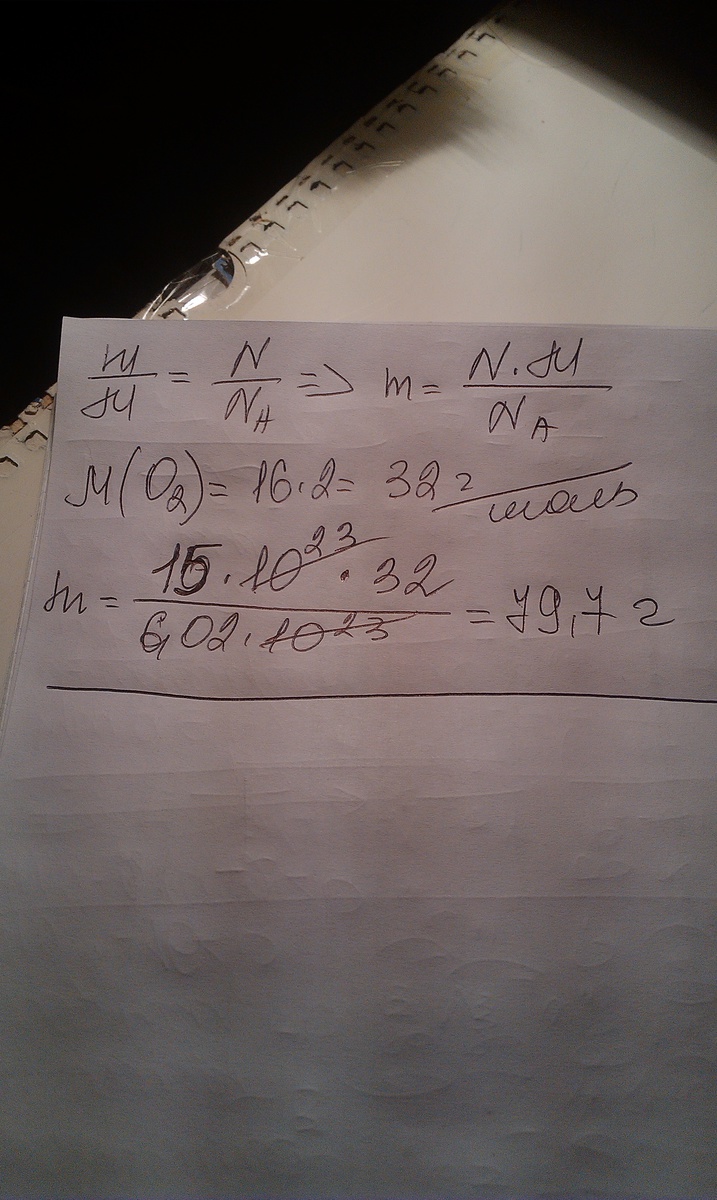 m/M = N/N_A => m = N·M/N_A
M(O₂) = 16·2 = 32 г/моль
m = 15·10²³·32/6,02·10²³ = 79,7 г